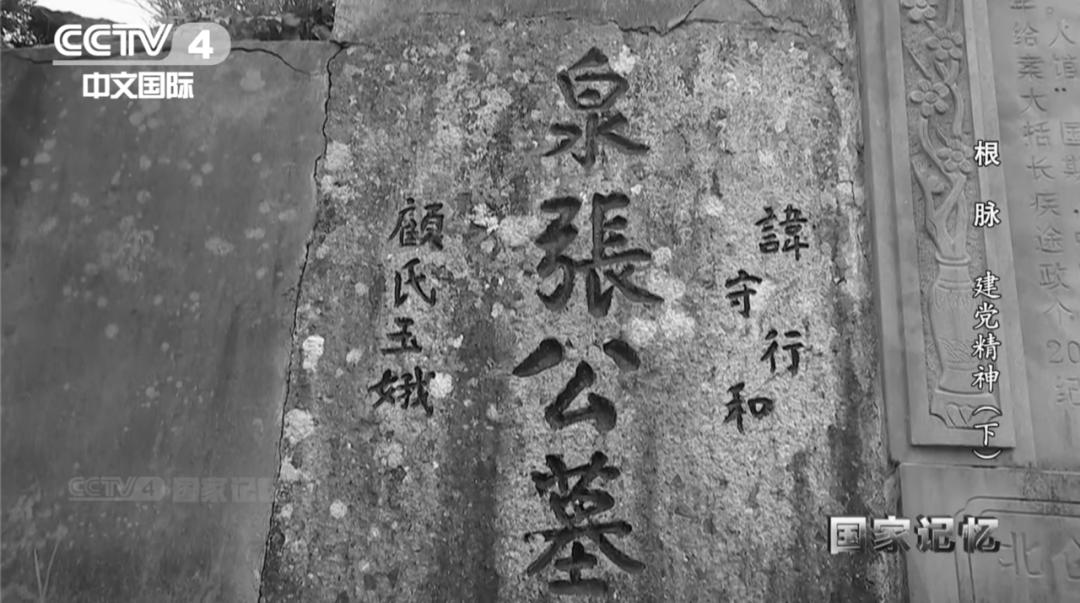 CCTV 4
中文国际
泉張公墓
諱行
守和
顧氏玉娥
根脉 建党精神（下）
国家记忆
CCTV4 国家记忆
年给案大括长疾途政个20纪
火 国
北仑